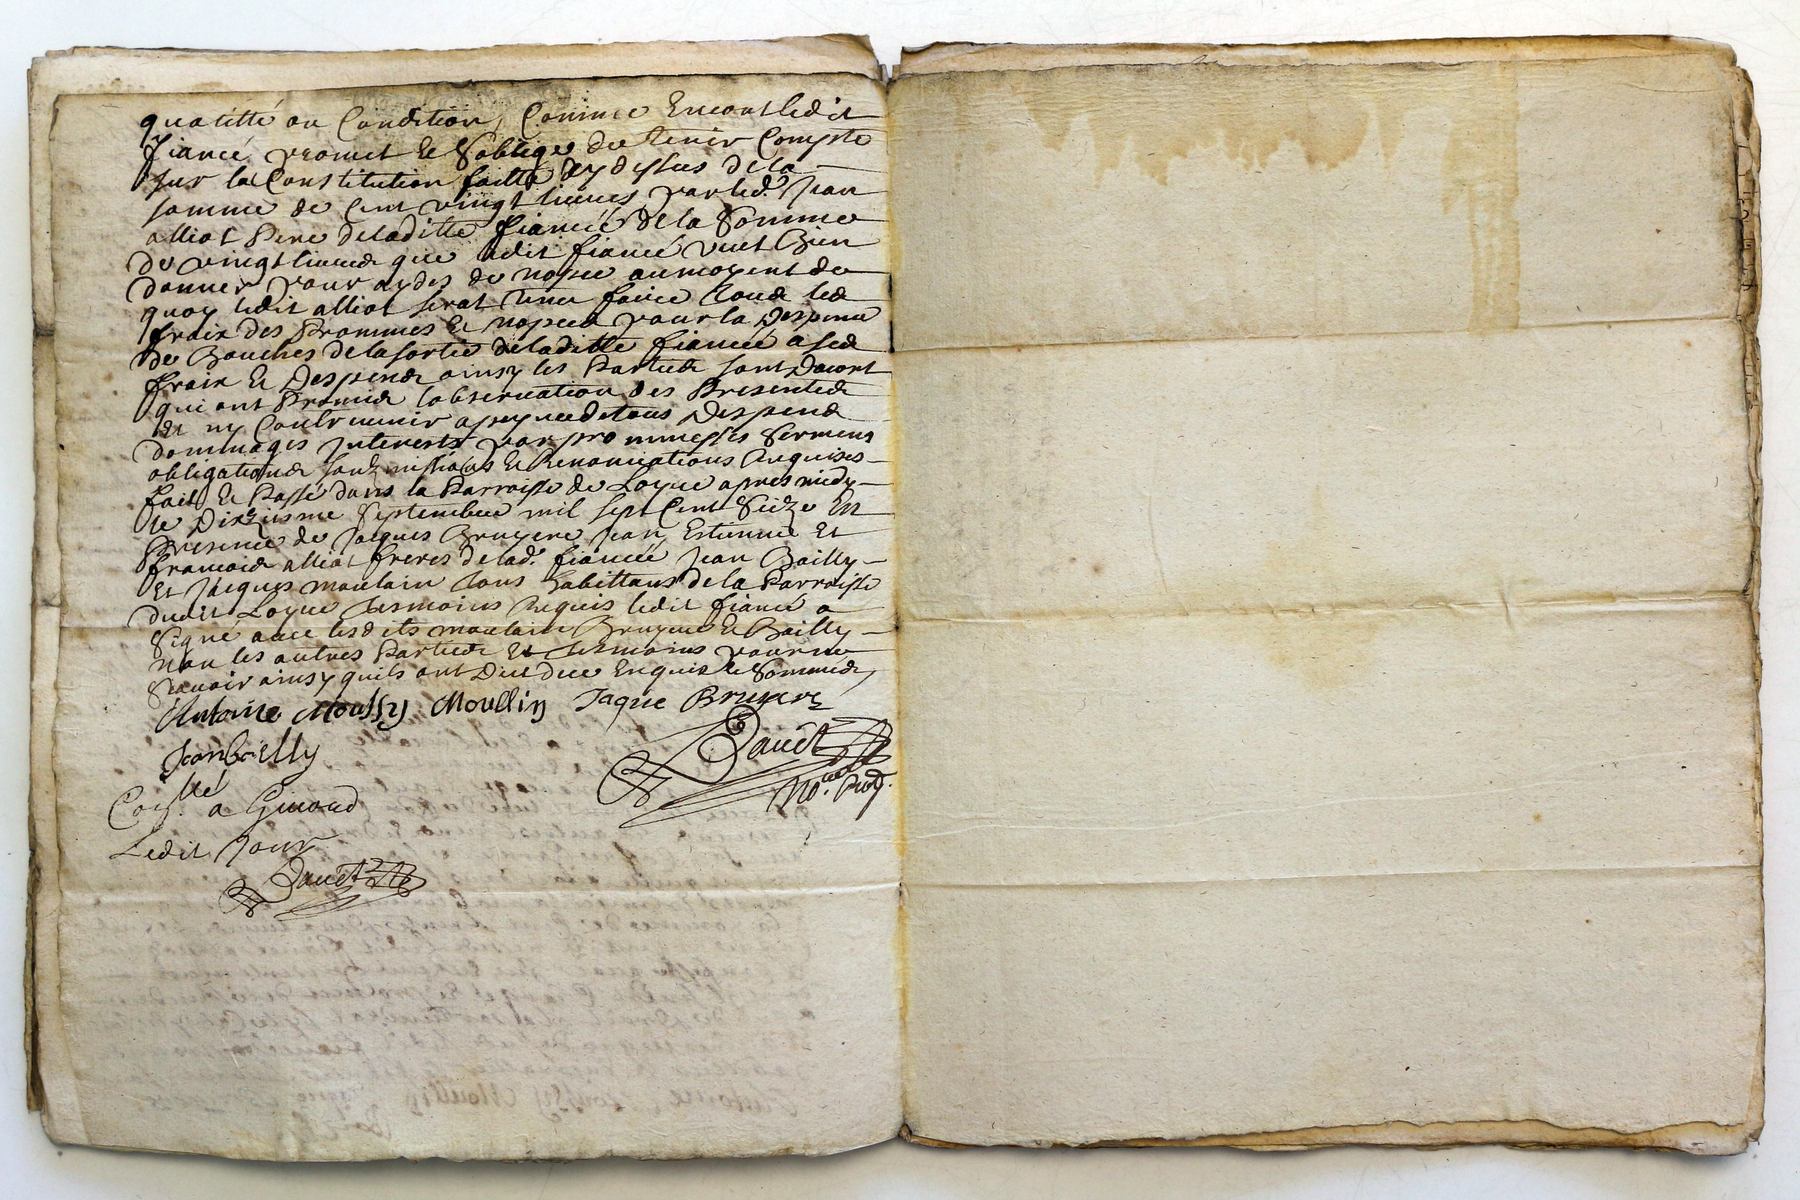 quatitté ou Condition, Comme Encont ledit
fiancé promet et Soblige de tenir Compte
sur la Constitution faitte cy dessus de la
somme de Cent vingt livres par led. Jean
alliot Pere deladitte fiancée de la Somme
de vingt livres que ledit fiancé veut Bien
donner pour aydes de nopce au moyent de
quoy ledit alliot serat tenu faire tous les
fraix des Brommes et nopces pour la Despence
de Bouches de la sortie deladitte fiancée a ses
fraix et Despends ainsy les Parties sont Dacort
qui ont Promis lobservation des Presentes
et ny Contrevenir a peyne de tous Despends
dommages Interests par prommesses Serment
obligations soubzmissions et Renonciations Requises
fait et Passé dans la Parroisse de Loyce apres midy
le Dixziesme Septembre mil sept Cent Seize En
Presence de Jacques Bruyere Jean, Estienne Et
francois alliot freres de lad. fiancée Jean Bailly
Et Jacques moulain tous habittans de la Parroisse
dudit Loyce tesmoins Requis ledit fiancé a
Signé avec lesdits moulain Bruyere et Bailly
non les autres Parties et tesmoins pour ne
Scavoir ainsy quils ont Dict dece Enquis et Sommés
Antoine Moussy Moullin Jaque Bruyere
Jan bailly
Dauct
No.re Roy.
Con.llé a Giuoud
Ledit Jour
Dauct